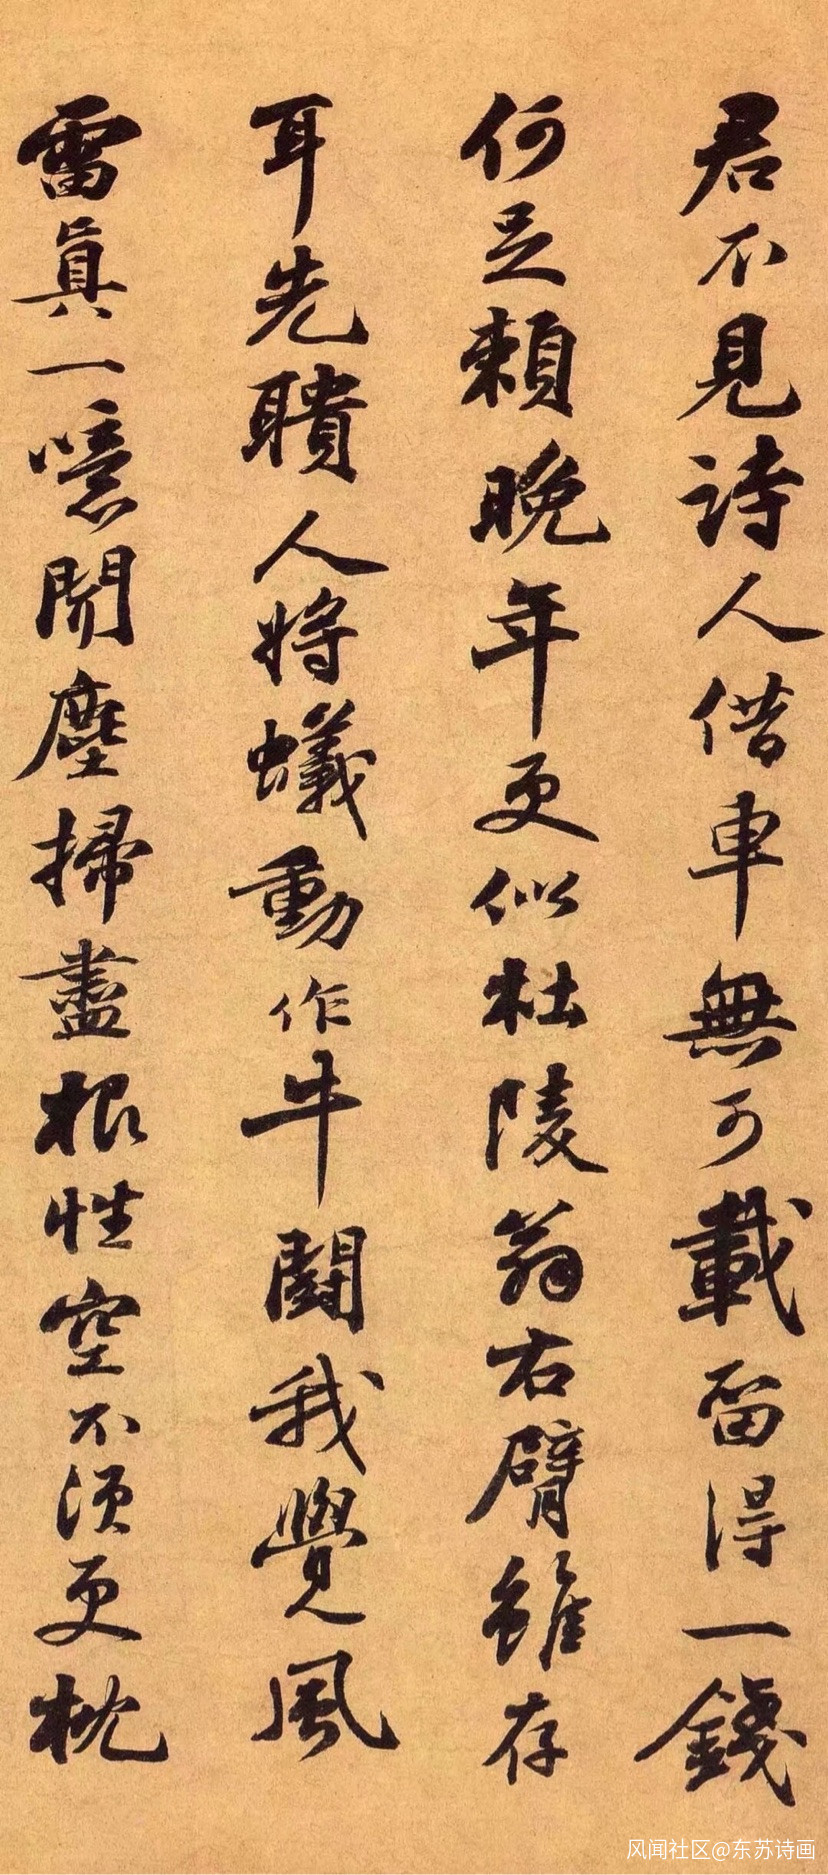 君不見詩人借車無可載留得一錢
何足賴晚年更似杜陵翁右臂雖存
耳先聵人將蟻動作牛鬪我覺風
雷真一噫聞塵掃盡根性空不須更枕
风闻社区@东苏诗画